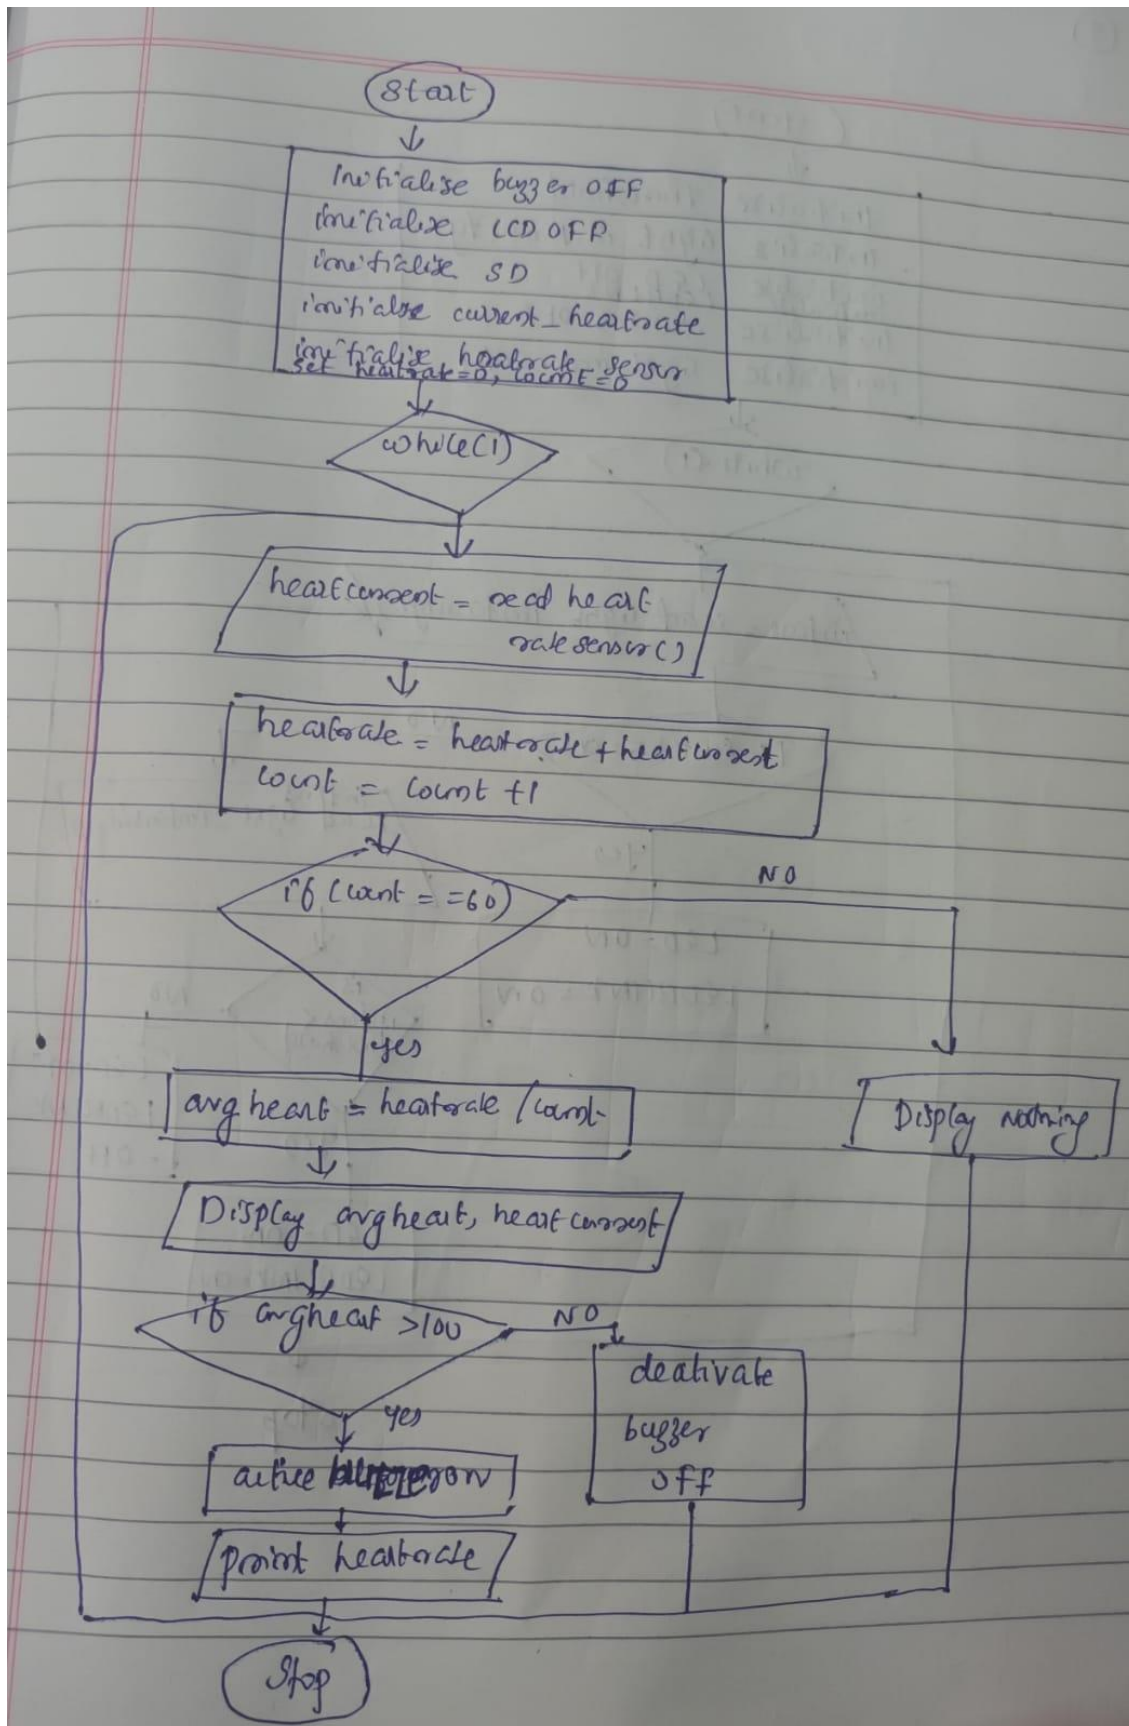 Start
Initialise buzzer OFF
initialise LCD OFF
initialise SD
initialse current_heartrate
initialise heartrate sensor
set heartrate=0, count=0
while(1)
heartcurrent = read heart
rate sensor()
heartrate = heartrate + heartcurrent
count = count +1
if (count = =60)
NO
yes
avg heart = heartrate / count
Display nothing
Display avgheart, heart current
if avgheart >100
NO
yes
deativate
buzzer
off
active buzzeron
print heartrate
Stop